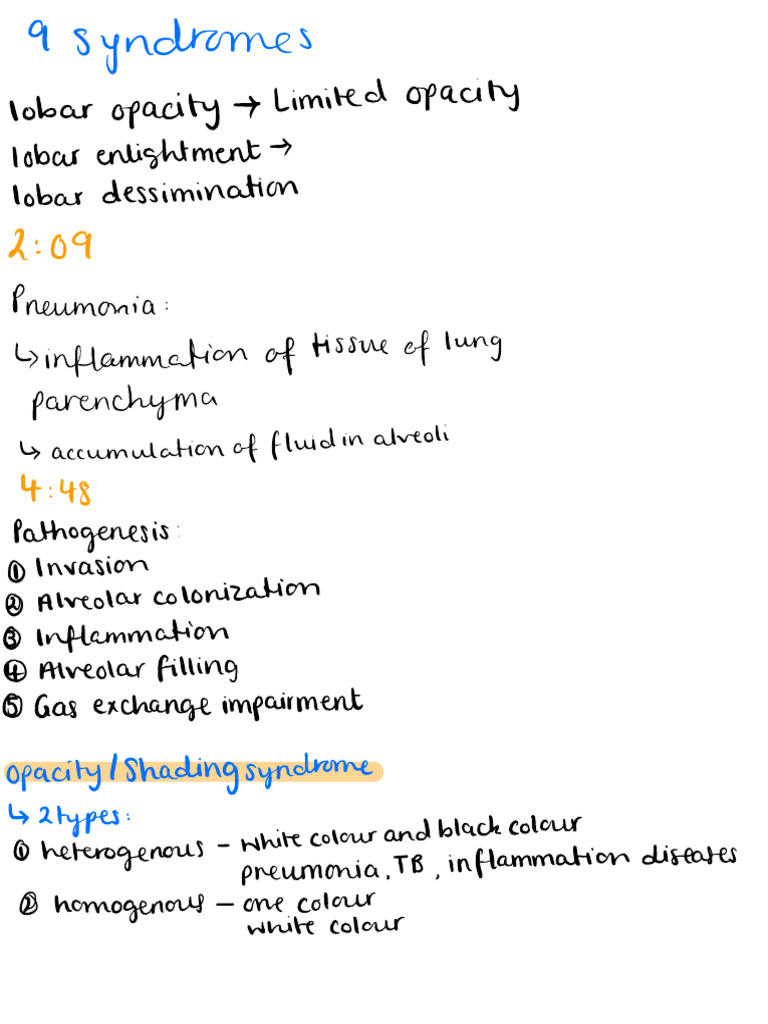 9 syndromes
lobar opacity → Limited opacity
lobar enlightment →
lobar dessimination
2:09
Pneumonia:
↳ inflammation of tissue of lung
parenchyma
↳ accumulation of fluid in alveoli
4:48
Pathogenesis:
① Invasion
② Alveolar colonization
③ Inflammation
④ Alveolar filling
⑤ Gas exchange impairment
Opacity/Shading syndrome
↳ 2 types:
① heterogenous - white colour and black colour
pneumonia, TB, inflammation diseases
② homogenous - one colour
white colour